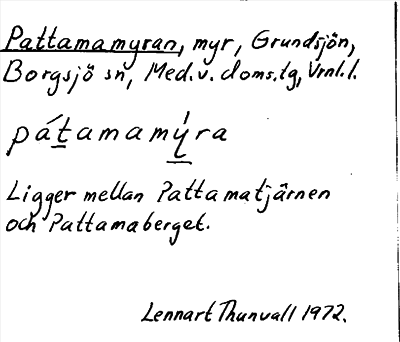 Pattamamyran, myr, Grundsjön,
Borgsjö sn, Med.v. doms.lg, Vrnl.l.
pá̱tamamý̱ra
Ligger mellan Pattamatjärnen
och Pattamaberget.
Lennart Thunvall 1972.